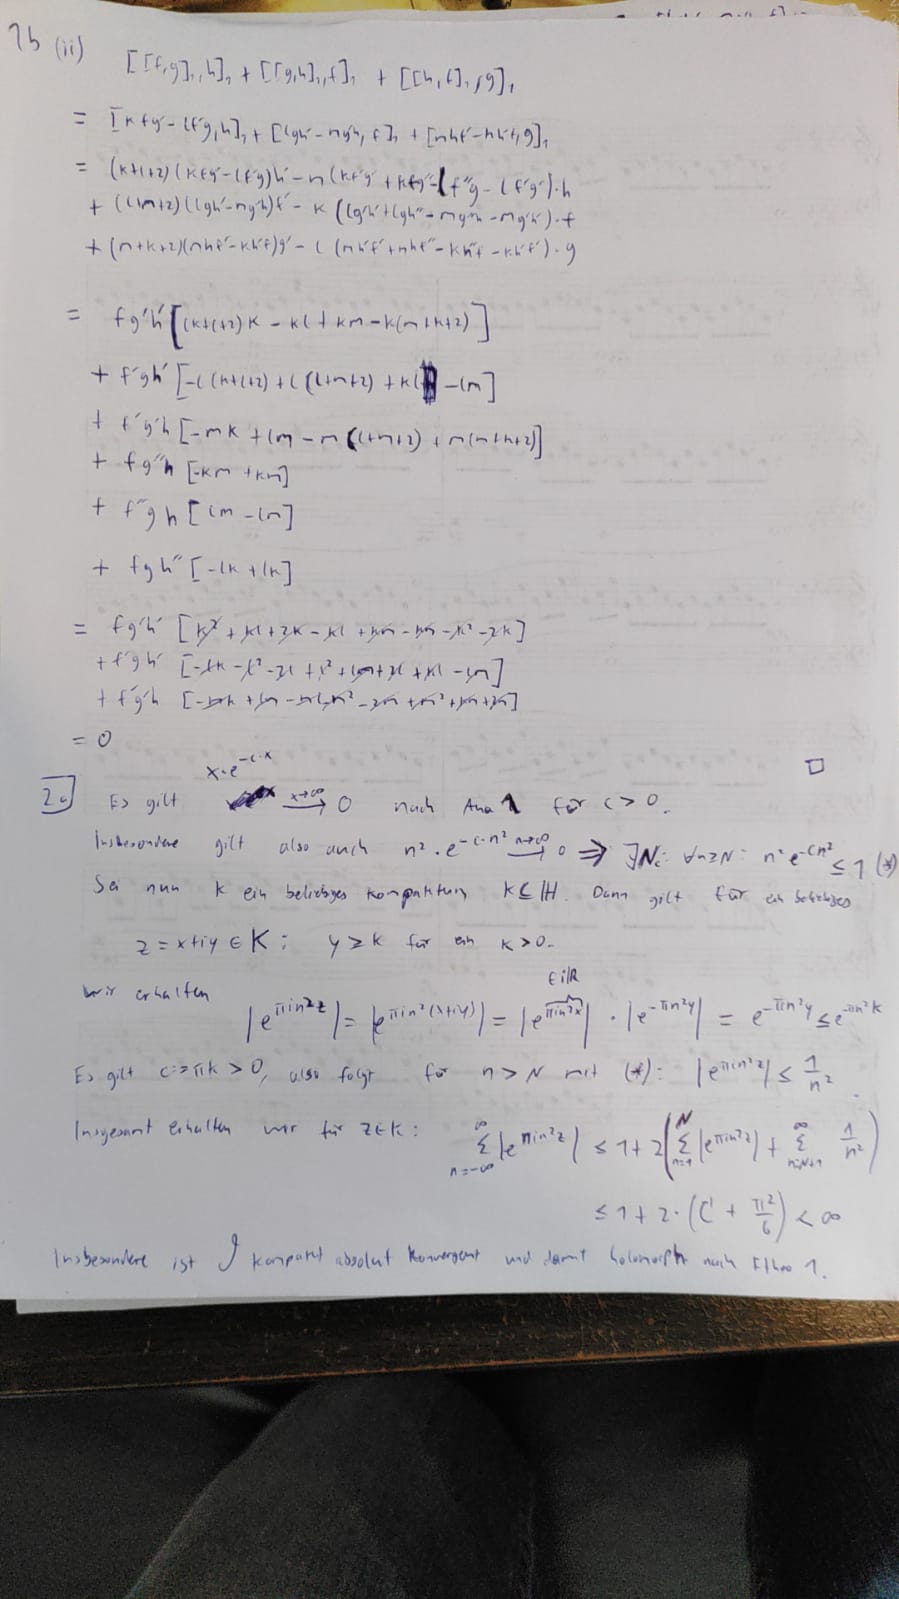 1b (ii) [[f,g]₁,h]₁ + [[g,h]₁,f]₁ + [[h,f]₁,g]₁
= [kfg' - lf'g, h]₁ + [lgh' - mg'h, f]₁ + [mhf' - kh'f, g]₁
= (k+l+2)(kfg' - lf'g)h' - m(kf'g' + kfg'' - lf''g - lf'g')·h
+ (l+m+2)(lgh' - mg'h)f' - k(lg'h' + lgh'' - mg''h - mg'h')·f
+ (m+k+2)(mhf' - kh'f)g' - l(mh'f' + mhf'' - kh''f - kh'f')·g
= fg'h' [(k+l+2)k - kl + km - k(m+k+2)]
+ f'gh' [-l(k+l+2) + l(l+m+2) + kl - lm]
+ f'g'h [-mk + lm - m(l+m+2) + m(m+k+2)]
+ fg''h [-km + km]
+ f''gh [lm - lm]
+ fgh'' [-lk + lk]
= fg'h' [k² + kl + 2k - kl + km - km - k² - 2k]
+ f'gh' [-lk - l² - 2l + l² + lm + 2l + kl - lm]
+ f'g'h [-mk + lm - ml - m² - 2m + m² + km + 2m]
= 0 □
2a) Es gilt x·e^{-c·x} →^{x→∞} 0 nach Ana 1 für c > 0.
Insbesondere gilt also auch n²·e^{-c·n²} →^{n→∞} 0 ⇒ ∃N: ∀n≥N: n²e^{-cn²} ≤ 1 (*)
Sei nun K ein beliebiges Kompaktum K ⊆ ℍ. Dann gilt für ein beliebiges
z = x+iy ∈ K: y ≥ k für ein k > 0.
Wir erhalten |e^{πin²z}| = |e^{πin²(x+iy)}| = |e^{πin²x}| · |e^{-πn²y}| = e^{-πn²y} ≤ e^{-πn²k}
∈iℝ
Es gilt c := πk > 0, also folgt für n > N mit (*): |e^{πin²z}| ≤ 1/n².
Insgesamt erhalten wir für z∈K: ∑_{n=-∞}^{∞} |e^{πin²z}| ≤ 1 + 2(∑_{n=1}^{N} |e^{πin²z}| + ∑_{n=N+1}^{∞} 1/n²)
≤ 1 + 2·(C + π²/6) < ∞
Insbesondere ist ϑ kompakt absolut konvergent und damit holomorph nach Ftheo 1.